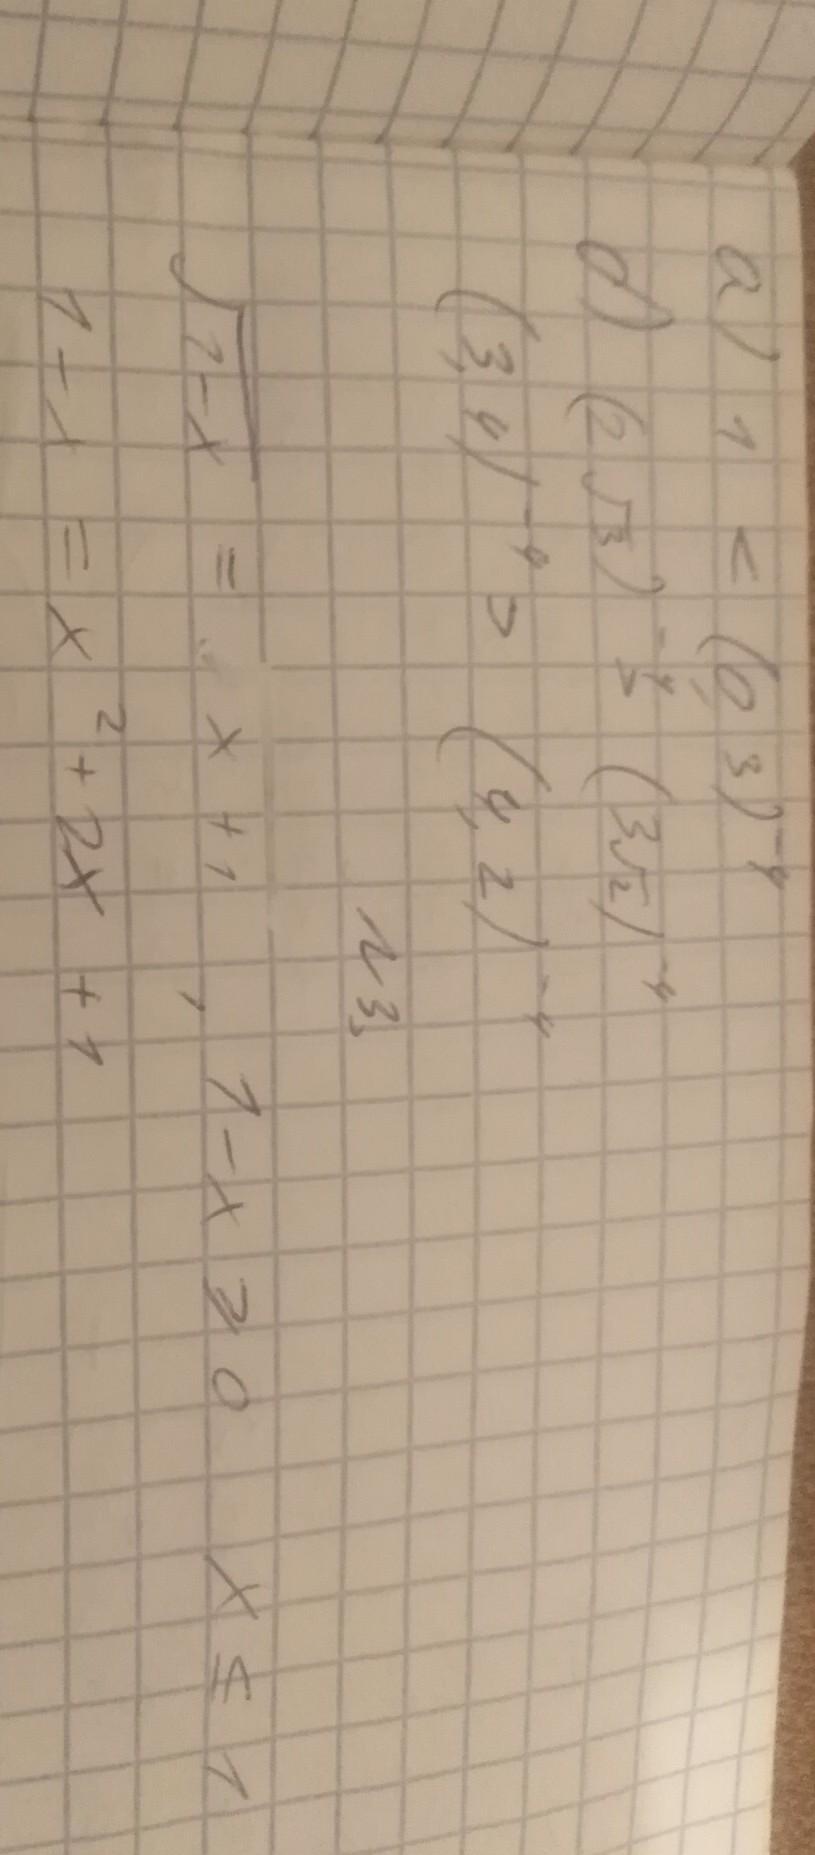 а) 1 < (0,3)⁻⁴
б) (2√3)⁻⁴ > (3√2)⁻⁴
(3,4)⁻⁴ > (4,2)⁻⁴
N3
√1-x = x + 1, 1 - x ⩾ 0 x ≤ 1
1 - x = x² + 2x + 1